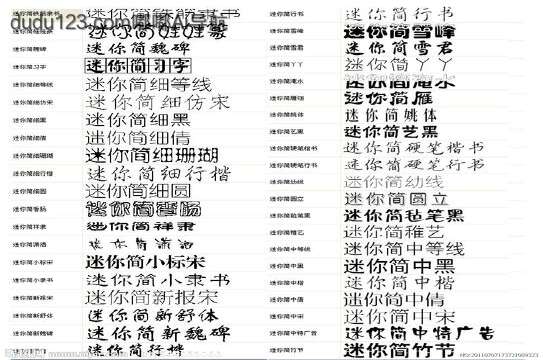 迷你简行书
迷你简雪峰
迷你简魏碑 迷你简雪君
迷你简习字 迷你简丫丫
迷你简细等线 迷你简淹水
迷你简细仿宋 迷你简雁
迷你简细黑 迷你简姚体
迷你简细倩 迷你简艺黑
迷你简细珊瑚 迷你简硬笔楷书
迷你简细行楷 迷你简硬笔行书
迷你简细圆 迷你简幼线
迷你简香肠 迷你简圆立
迷你简祥隶 迷你简毡笔黑
迷你简潇洒 迷你简稚艺
迷你简小标宋 迷你简中等线
迷你简小隶书 迷你简中黑
迷你简新报宋 迷你简中楷
迷你简新舒体 迷你简中倩
迷你简新魏碑 迷你简中宋
迷你简中特广告
迷你简竹节
dudu123.com